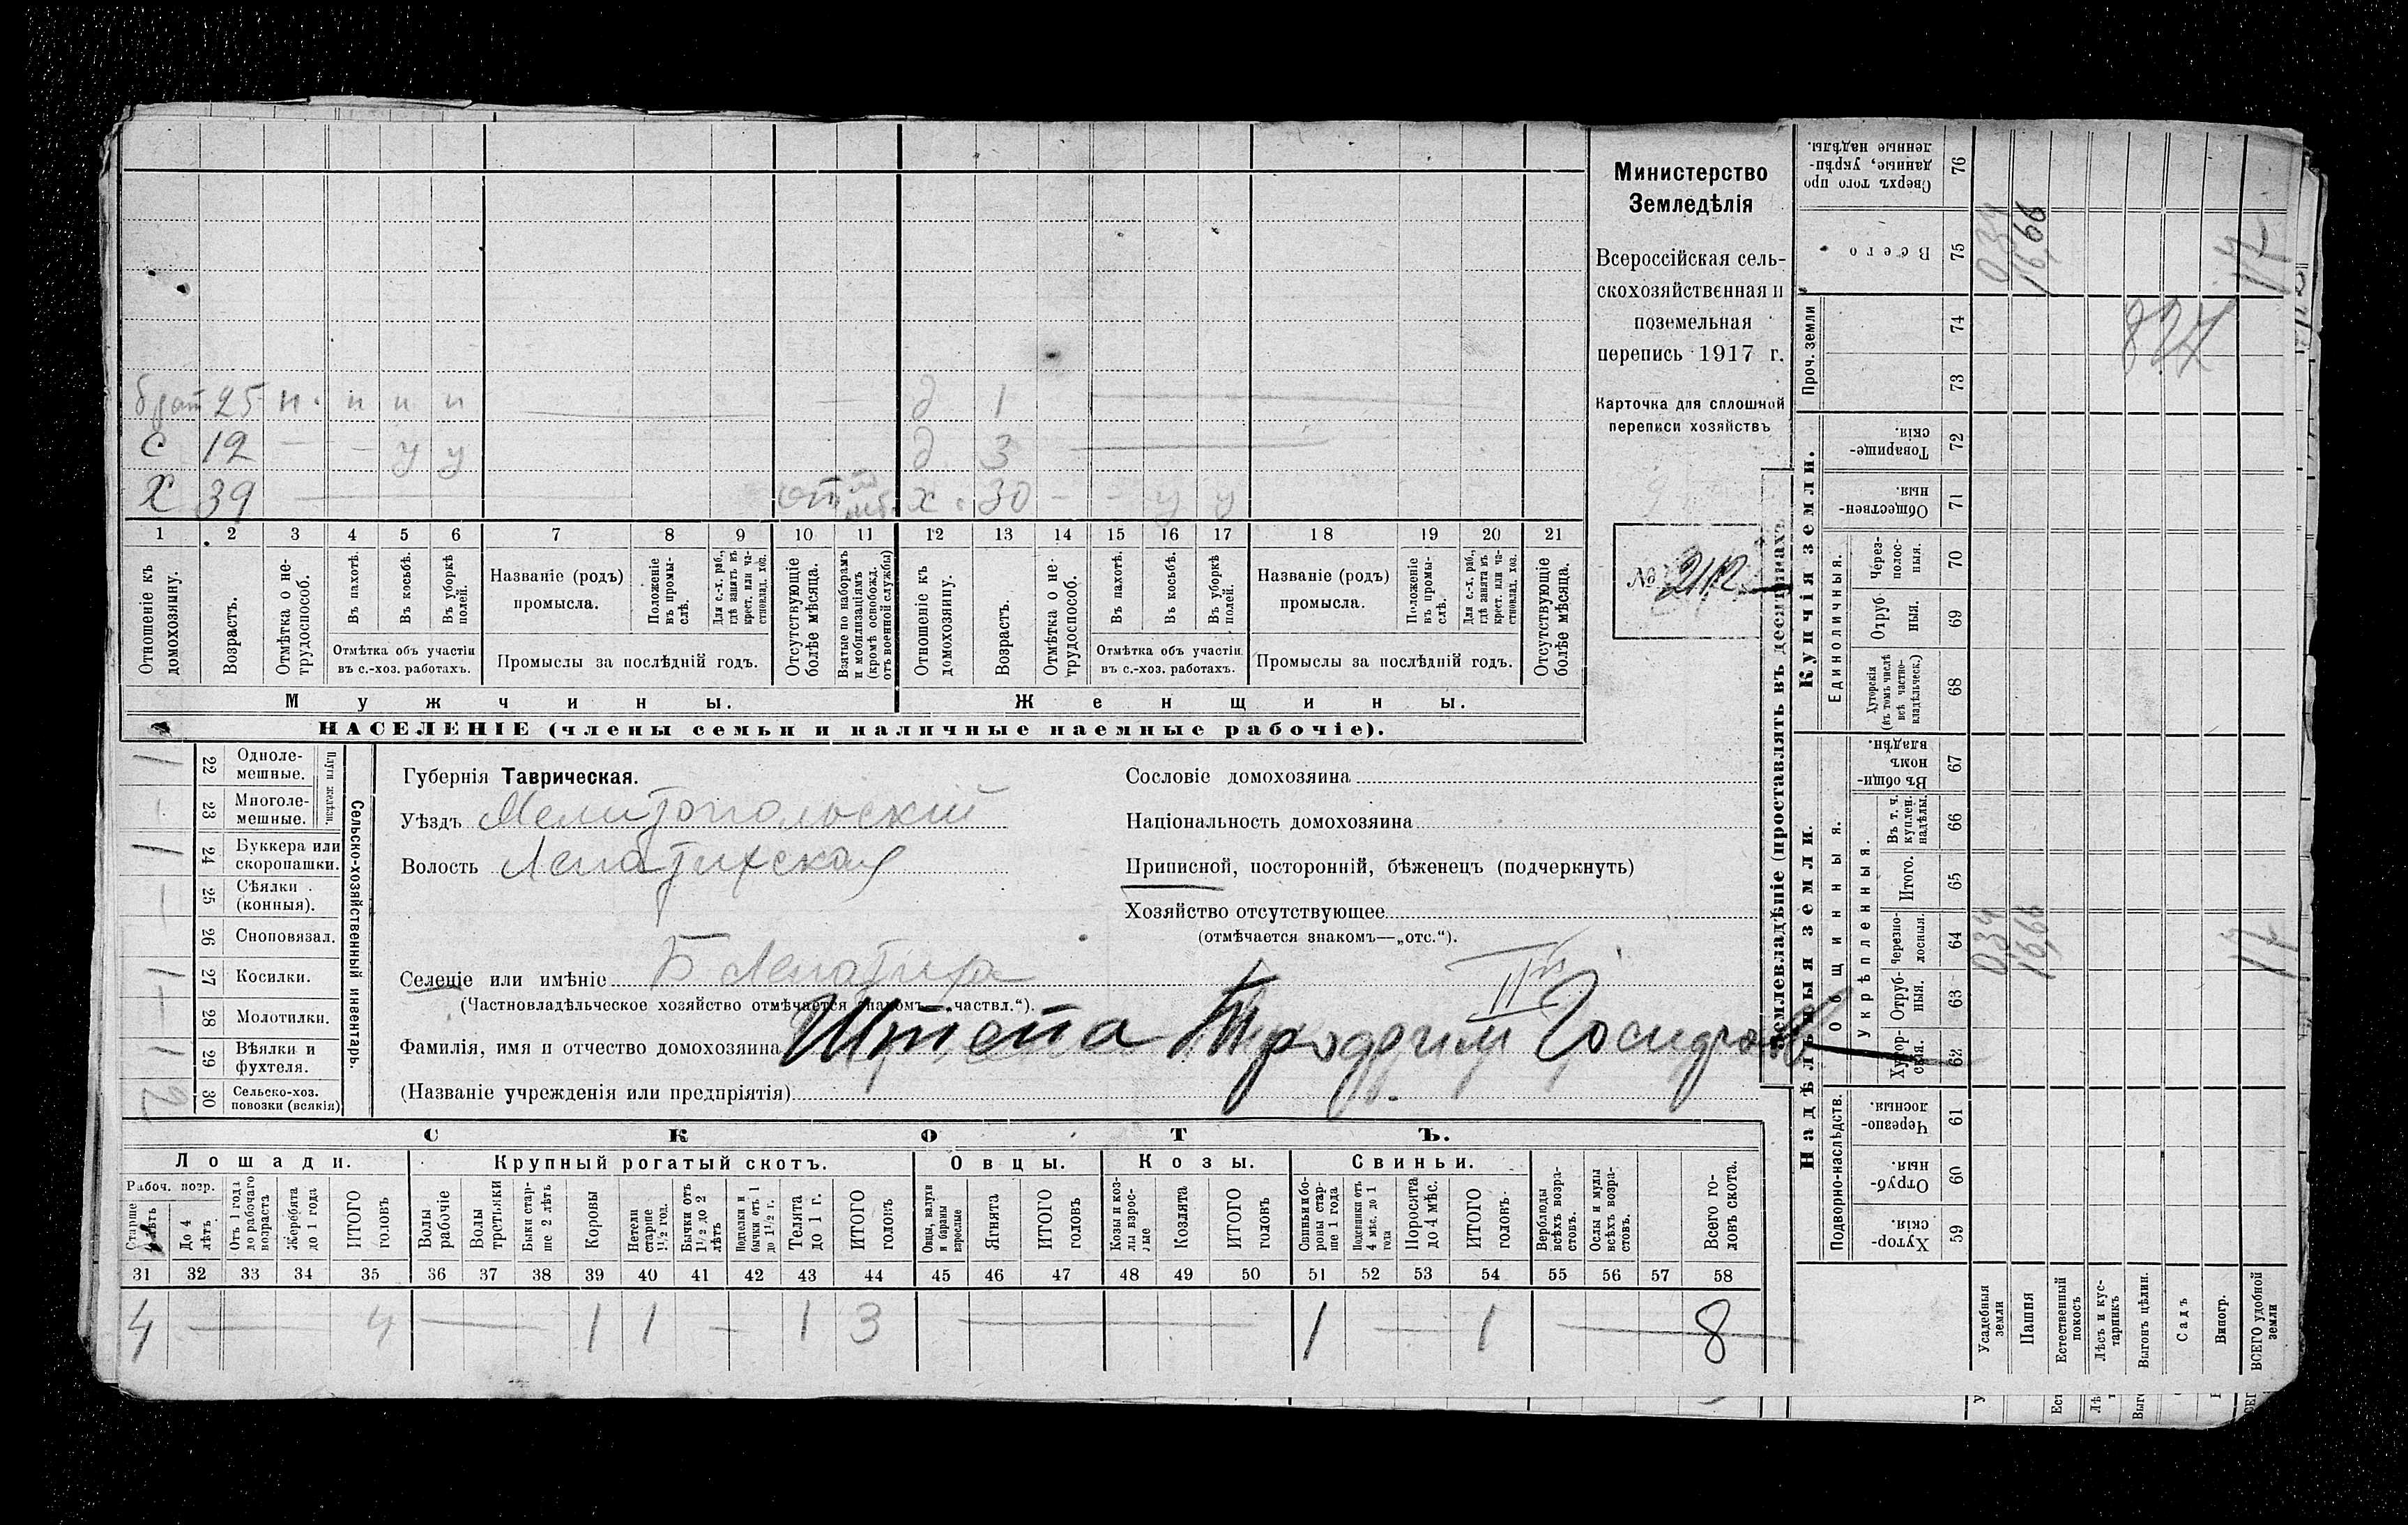 Министерство
Земледѣлія
Всероссійская сель-
скохозяйственная и
поземельная
перепись 1917 г.
Карточка для сплошной
переписи хозяйствъ
№ 212
брат 25 н. н н н — д 1 —
с 12 — — у у д 3 —
х 39 — х 30 — — у у
1 2 3 4 5 6 7 8 9 10 11 12 13 14 15 16 17 18 19 20 21
Отношеніе къ домохозяину.
Возрастъ.
Отмѣтка о не-трудоспособ.
Въ пахотѣ.
Въ косьбѣ.
Въ уборкѣ полей.
Отмѣтка объ участіи
въ с.-хоз. работахъ.
Названіе (родъ)
промысла.
Положеніе въ промы-слѣ.
Для с.-х. раб., гдѣ занятъ въ крест. или ча-стновлад. хоз.
Промыслы за послѣдній годъ.
Отсутствующіе болѣе мѣсяца.
Взятые по наборамъ и мобилизаціямъ (кромѣ освобожд. отъ военной службы)
Отношеніе къ домохозяину.
Возрастъ.
Отмѣтка о не-трудоспособ.
Въ пахотѣ.
Въ косьбѣ.
Въ уборкѣ полей.
Отмѣтка объ участіи
въ с.-хоз. работахъ.
Названіе (родъ)
промысла.
Положеніе въ промы-слѣ.
Для с.-х. раб., гдѣ занята въ крест. или ча-стновлад. хоз.
Промыслы за послѣдній годъ.
Отсутствующіе болѣе мѣсяца.
Мужчины.
Женщины.
НАСЕЛЕНІЕ (члены семьи и наличные наемные рабочіе).
Сельско-хозяйственный инвентарь.
Плуги желѣзн.
1 22 Одноле-мешные.
23 Многоле-мешные.
1 24 Буккера или скоропашки.
— 25 Сѣялки (конныя).
26 Сноповязал.
1 27 Косилки.
— 28 Молотилки.
1 29 Вѣялки и фухтеля.
2 30 Сельско-хоз. повозки (всякія)
Губернія Таврическая.
Уѣздъ Мелитопольскій
Волость Лепатихская
Селеніе или имѣніе Б Лепатиха
(Частновладѣльческое хозяйство отмѣчается знакомъ—„частвл.“).
Фамилія, имя и отчество домохозяина Штепа
(Названіе учрежденія или предпріятія)
Сословіе домохозяина
Національность домохозяина
Приписной, посторонній, бѣженецъ (подчеркнуть)
Хозяйство отсутствующее
(отмѣчается знакомъ—„отс.“).
СКОТЪ.
Лошади.
Крупный рогатый скотъ.
Овцы.
Козы.
Свиньи.
Рабоч. возр.
Старше 4 лѣтъ
До 4 лѣтъ
Отъ 1 года до рабочаго возраста
Жеребята до 1 года
ИТОГО головъ
Волы рабочіе
Волы третьяки
Быки стар-ше 2 лѣтъ
Коровы
Нетели старше 1½ год.
Бычки отъ 1½ до 2 лѣтъ
Подтелки и бычки отъ 1 до 1½ г.
Телята до 1 г.
ИТОГО головъ
Овцы, валухи и бараны взрослые
Ягнята
ИТОГО головъ
Козы и коз-лы взрос-лые
Козлята
ИТОГО головъ
Свиньи и бо-ровы стар-ше 1 года
Подсвинки отъ 4 мѣс. до 1 года
Поросята до 4 мѣс.
ИТОГО головъ
Верблюды всѣхъ возра-стовъ.
Ослы и мулы всѣхъ возра-стовъ.
Всего го-ловъ скота.
31 32 33 34 35 36 37 38 39 40 41 42 43 44 45 46 47 48 49 50 51 52 53 54 55 56 57 58
4 — 4 — 1 1 — 1 3 — 1 — 1 — 8
Землевладѣніе (проставлять въ десятинахъ
Надѣльныя земли.
Купчія земли.
Проч. земли
Подворно-наслѣдств.
Общинныя.
Укрѣпленныя.
Единоличныя.
Хутор-скія. 59
Отруб-ныя. 60
Черезпо-лосныя. 61
Хутор-ская. 62
Отруб-ныя. 63
Черезпо-лосныя. 64
Итого. 65
Въ т. ч. куплен. надѣлы. 66
Въ общин-номъ владѣн. 67
Хуторскія (въ томъ числѣ всѣ частно-владѣльческ.) 68
Отруб-ныя. 69
Через-полос-ныя. 70
Обществен-ныя. 71
Товарище-скія. 72
73
74
Всего 75
Сверхъ того про-данные, укрѣп-ленные надѣлы. 76
Усадебныя земли 0,34 0,34
Пашня 16,66 16,66
Естественный покосъ
Лѣсъ и кус-тарникъ
Выгонъ цѣлин.
Садъ
Виногр.
ВСЕГО удобной земли 17 17